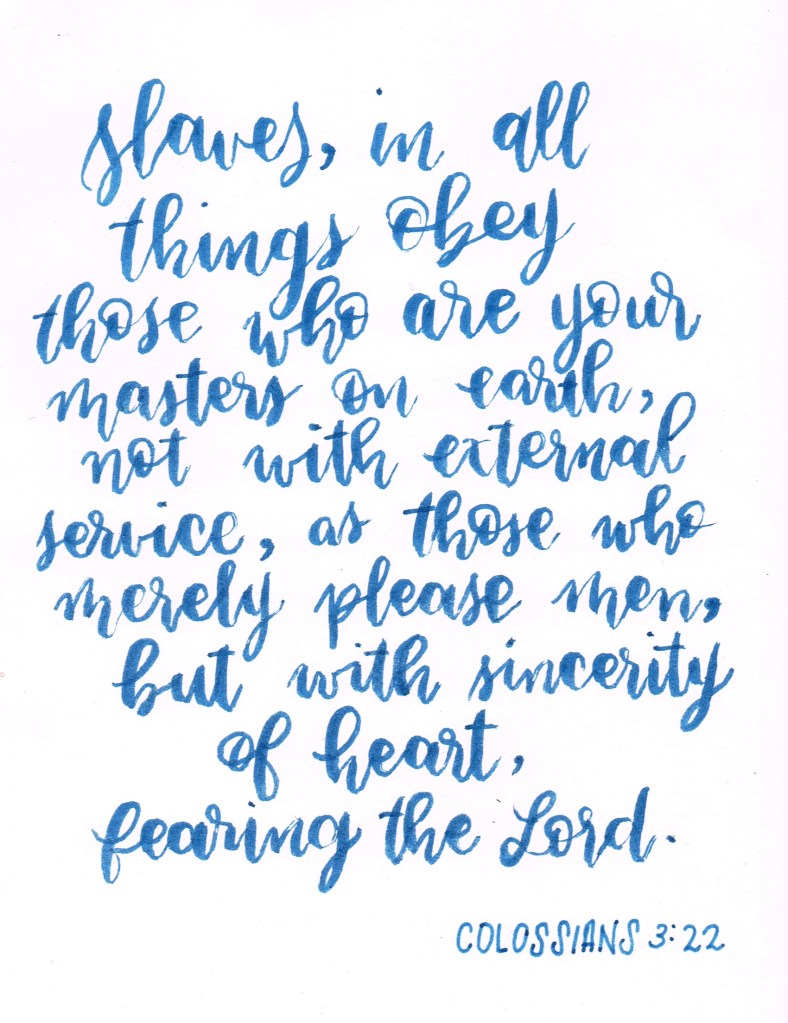 slaves, in all
things obey
those who are your
masters on earth,
not with external
service, as those who
merely please men,
but with sincerity
of heart,
fearing the Lord.
COLOSSIANS 3:22